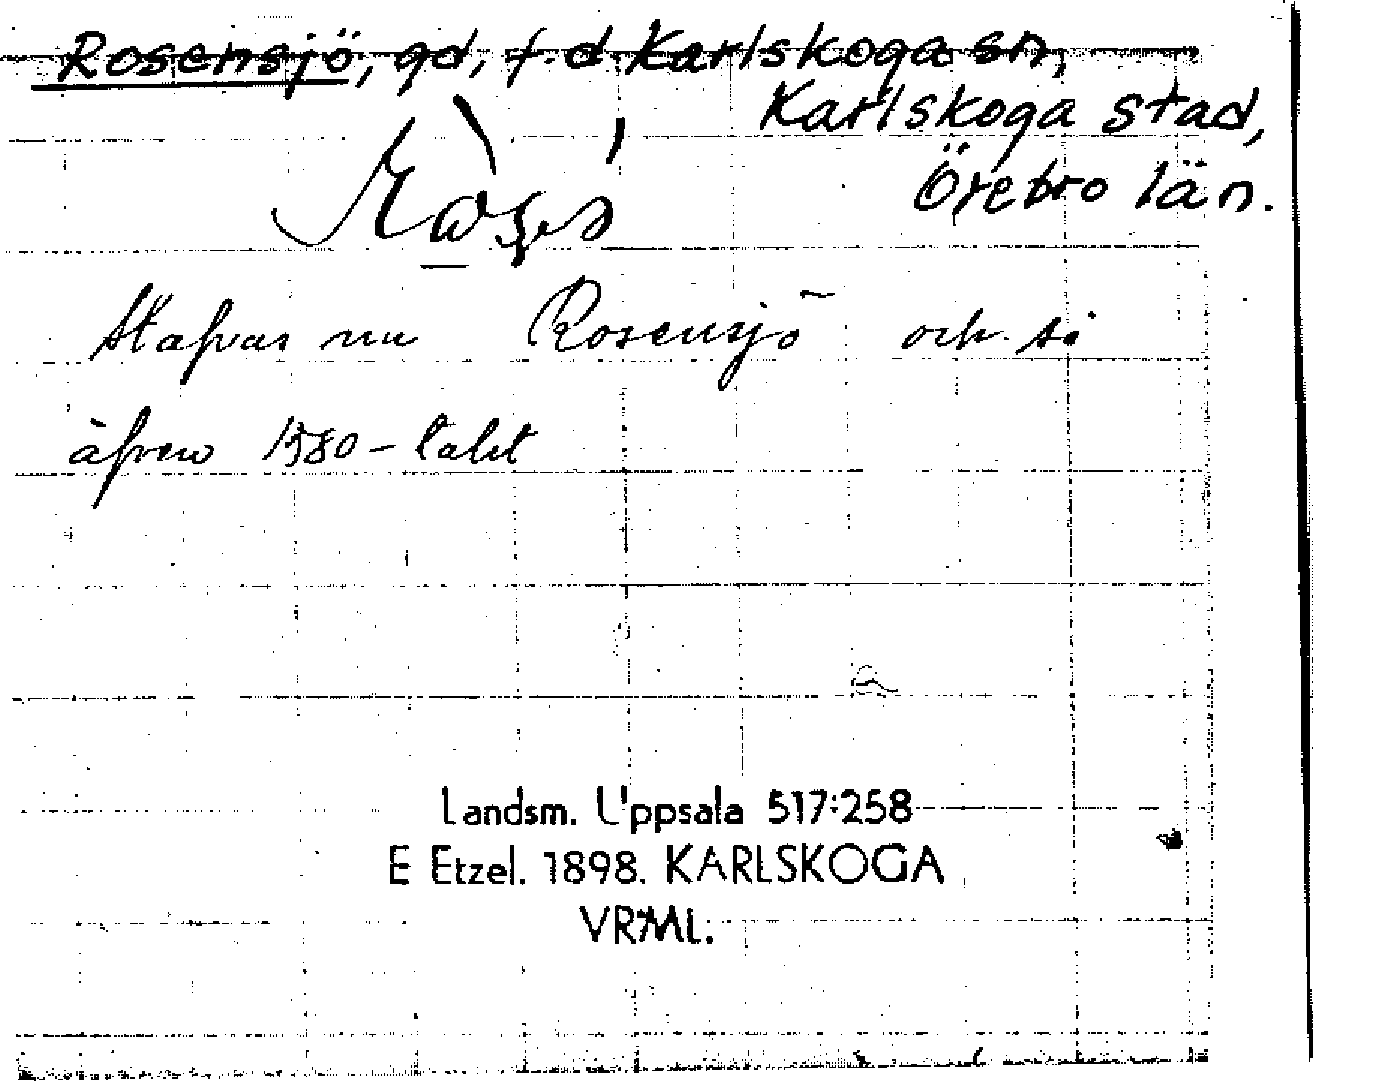 Rosensjö, gd, f.d. Karlskoga sn,
Karlskoga stad,
Örebro län.
Stafvas nu Rosensjö och så
äfven 1580-talet
Landsm. Uppsala 517:258
E Etzel. 1898. KARLSKOGA
VRML.